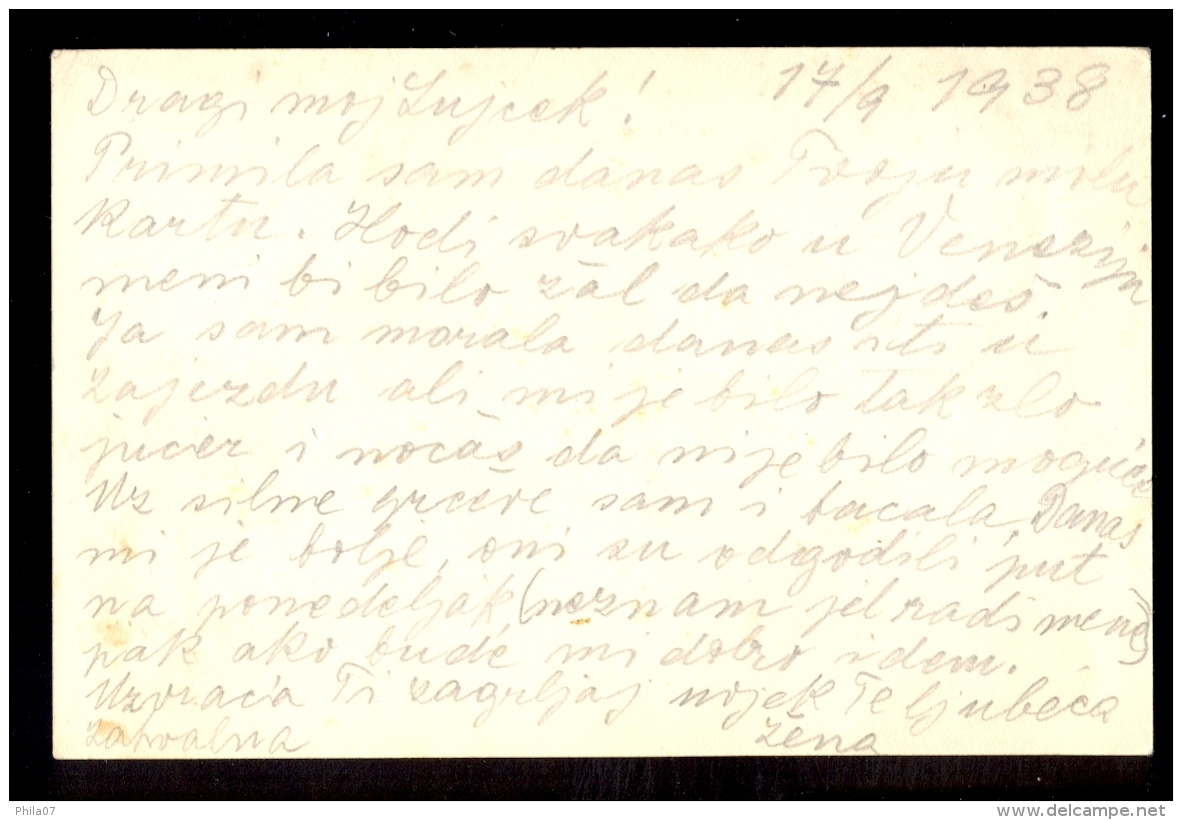 17/9 1938
Dragi moj Lujcek!
Primila sam danas Tvoju milu
kartu. Hodi svakako u Veneziju
meni bi bilo žal da nejdeš.
Ja sam morala danas iti u
Zajezdu ali mi je bilo tak zlo
jučer i nočas da nije bilo moguće
Uz silne grčeve sam i bacala. Danas
mi je bolje, oni su odgodili put
na ponedeljak (neznam jel radi mene)
pak ako bude mi dobro idem.
Uzvraća Ti zagrljaj uvjek Te ljubeća
zahvalna žena
Phila07
www.delcampe.net